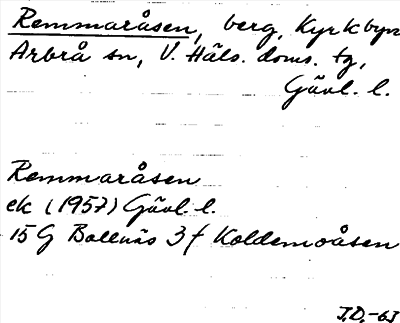 Remmaråsen, berg, Kyrkbyn
Arbrå sn, V. Häls. doms. tg,
Gävl. l.
Remmaråsen
ek (1957) Gävl. l.
15 G Bollnäs 3 f Koldemoåsen
J.D.-63